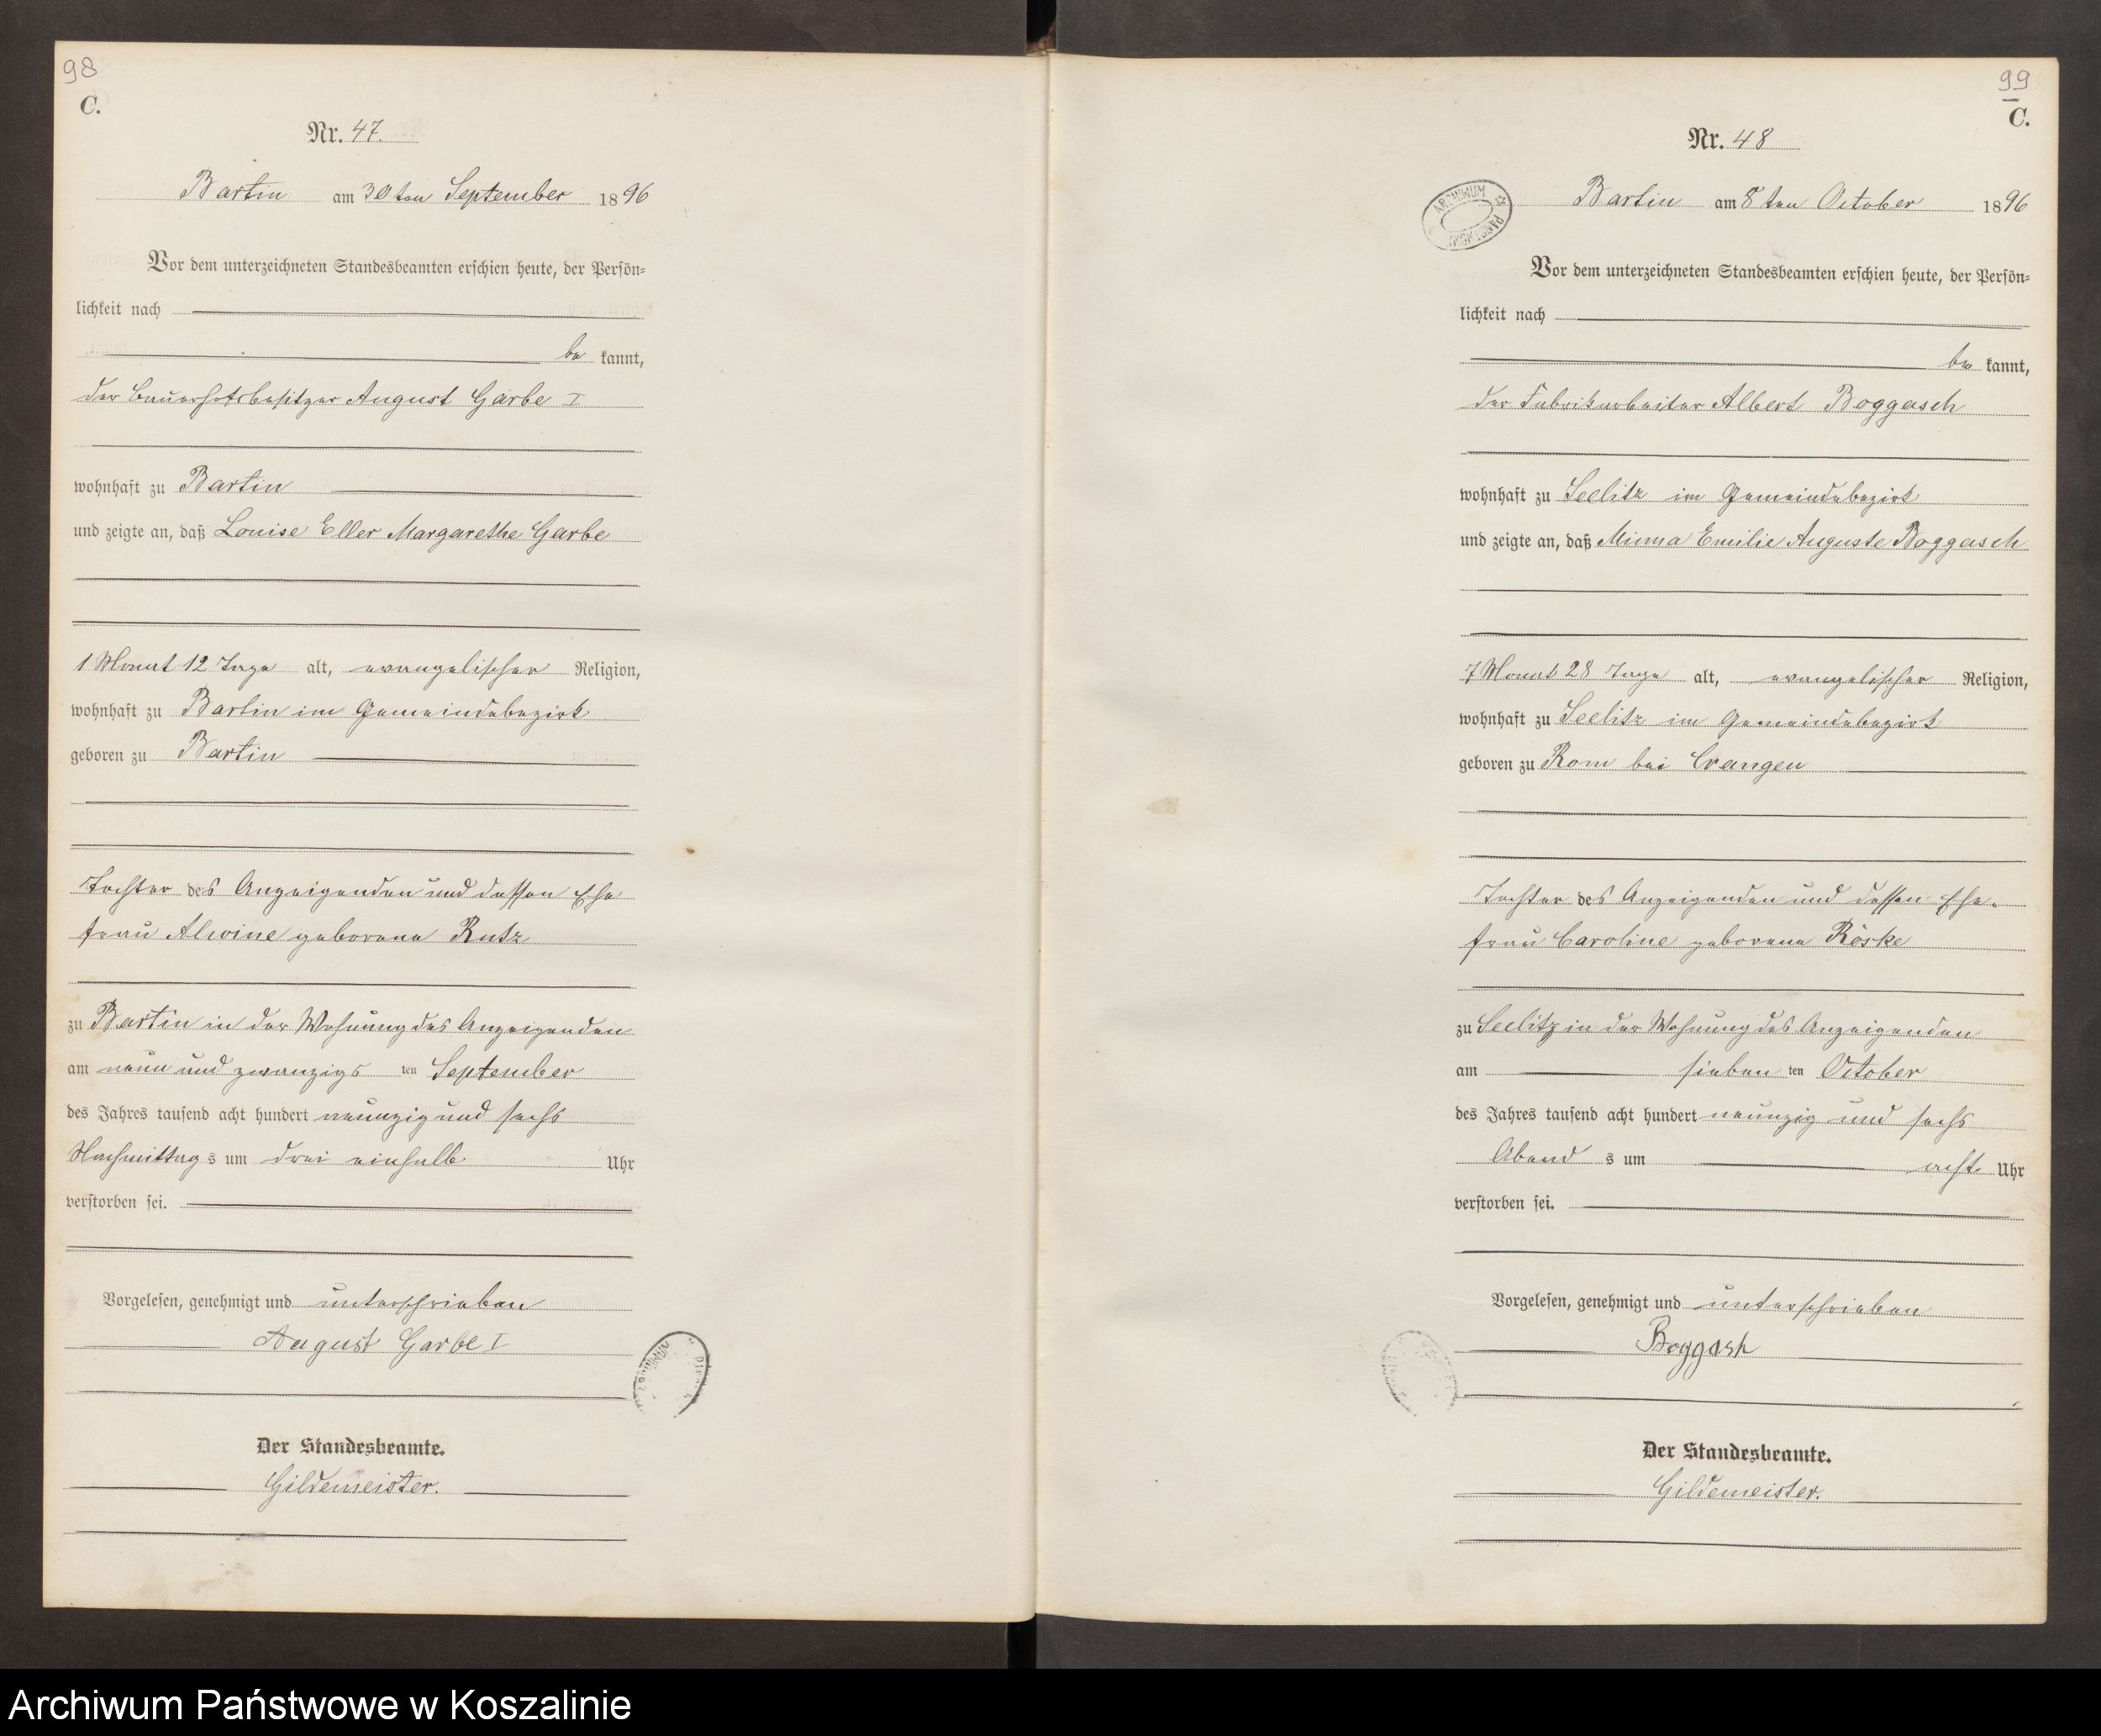 98
C.
Nr. 47.
Bartin am 30ten September 1896
Vor dem unterzeichneten Standesbeamten erschien heute, der Persön-
lichkeit nach
be kannt,
der Bauerhofsbesitzer August Garbe I
wohnhaft zu Bartin
und zeigte an, daß Louise Eller Margarethe Garbe
1 Monat 12 Tage alt, evangelischer Religion,
wohnhaft zu Bartin im Gemeindebezirk
geboren zu Bartin
Tochter des Anzeigenden und dessen Ehe
frau Alwine geborene Rutz
zu Bartin in der Wohnung des Anzeigenden
am neun und zwanzigs ten September
des Jahres tausend acht hundert neunzig und sechs
Nachmittag s um drei einhalb Uhr
verstorben sei.
Vorgelesen, genehmigt und unterschrieben
August Garbe I
Der Standesbeamte.
Gildemeister.
99
C.
Nr. 48
ARCHIWUM PAŃSTWOWE
Bartin am 8ten October 1896
Vor dem unterzeichneten Standesbeamten erschien heute, der Persön-
lichkeit nach
be kannt,
der Fabrikarbeiter Albert Boggasch
wohnhaft zu Seelitz im Gemeindebezirk
und zeigte an, daß Minna Emilie Auguste Boggasch
7 Monat 28 Tage alt, evangelischer Religion,
wohnhaft zu Seelitz im Gemeindebezirk
geboren zu Rom bei Crangen
Tochter des Anzeigenden und dessen Ehe-
frau Caroline geborene Röske
zu Seelitz in der Wohnung des Anzeigenden
am sieben ten October
des Jahres tausend acht hundert neunzig und sechs
Abend s um acht Uhr
verstorben sei.
Vorgelesen, genehmigt und unterschrieben
Boggash
Der Standesbeamte.
Gildemeister.
Archiwum Państwowe w Koszalinie